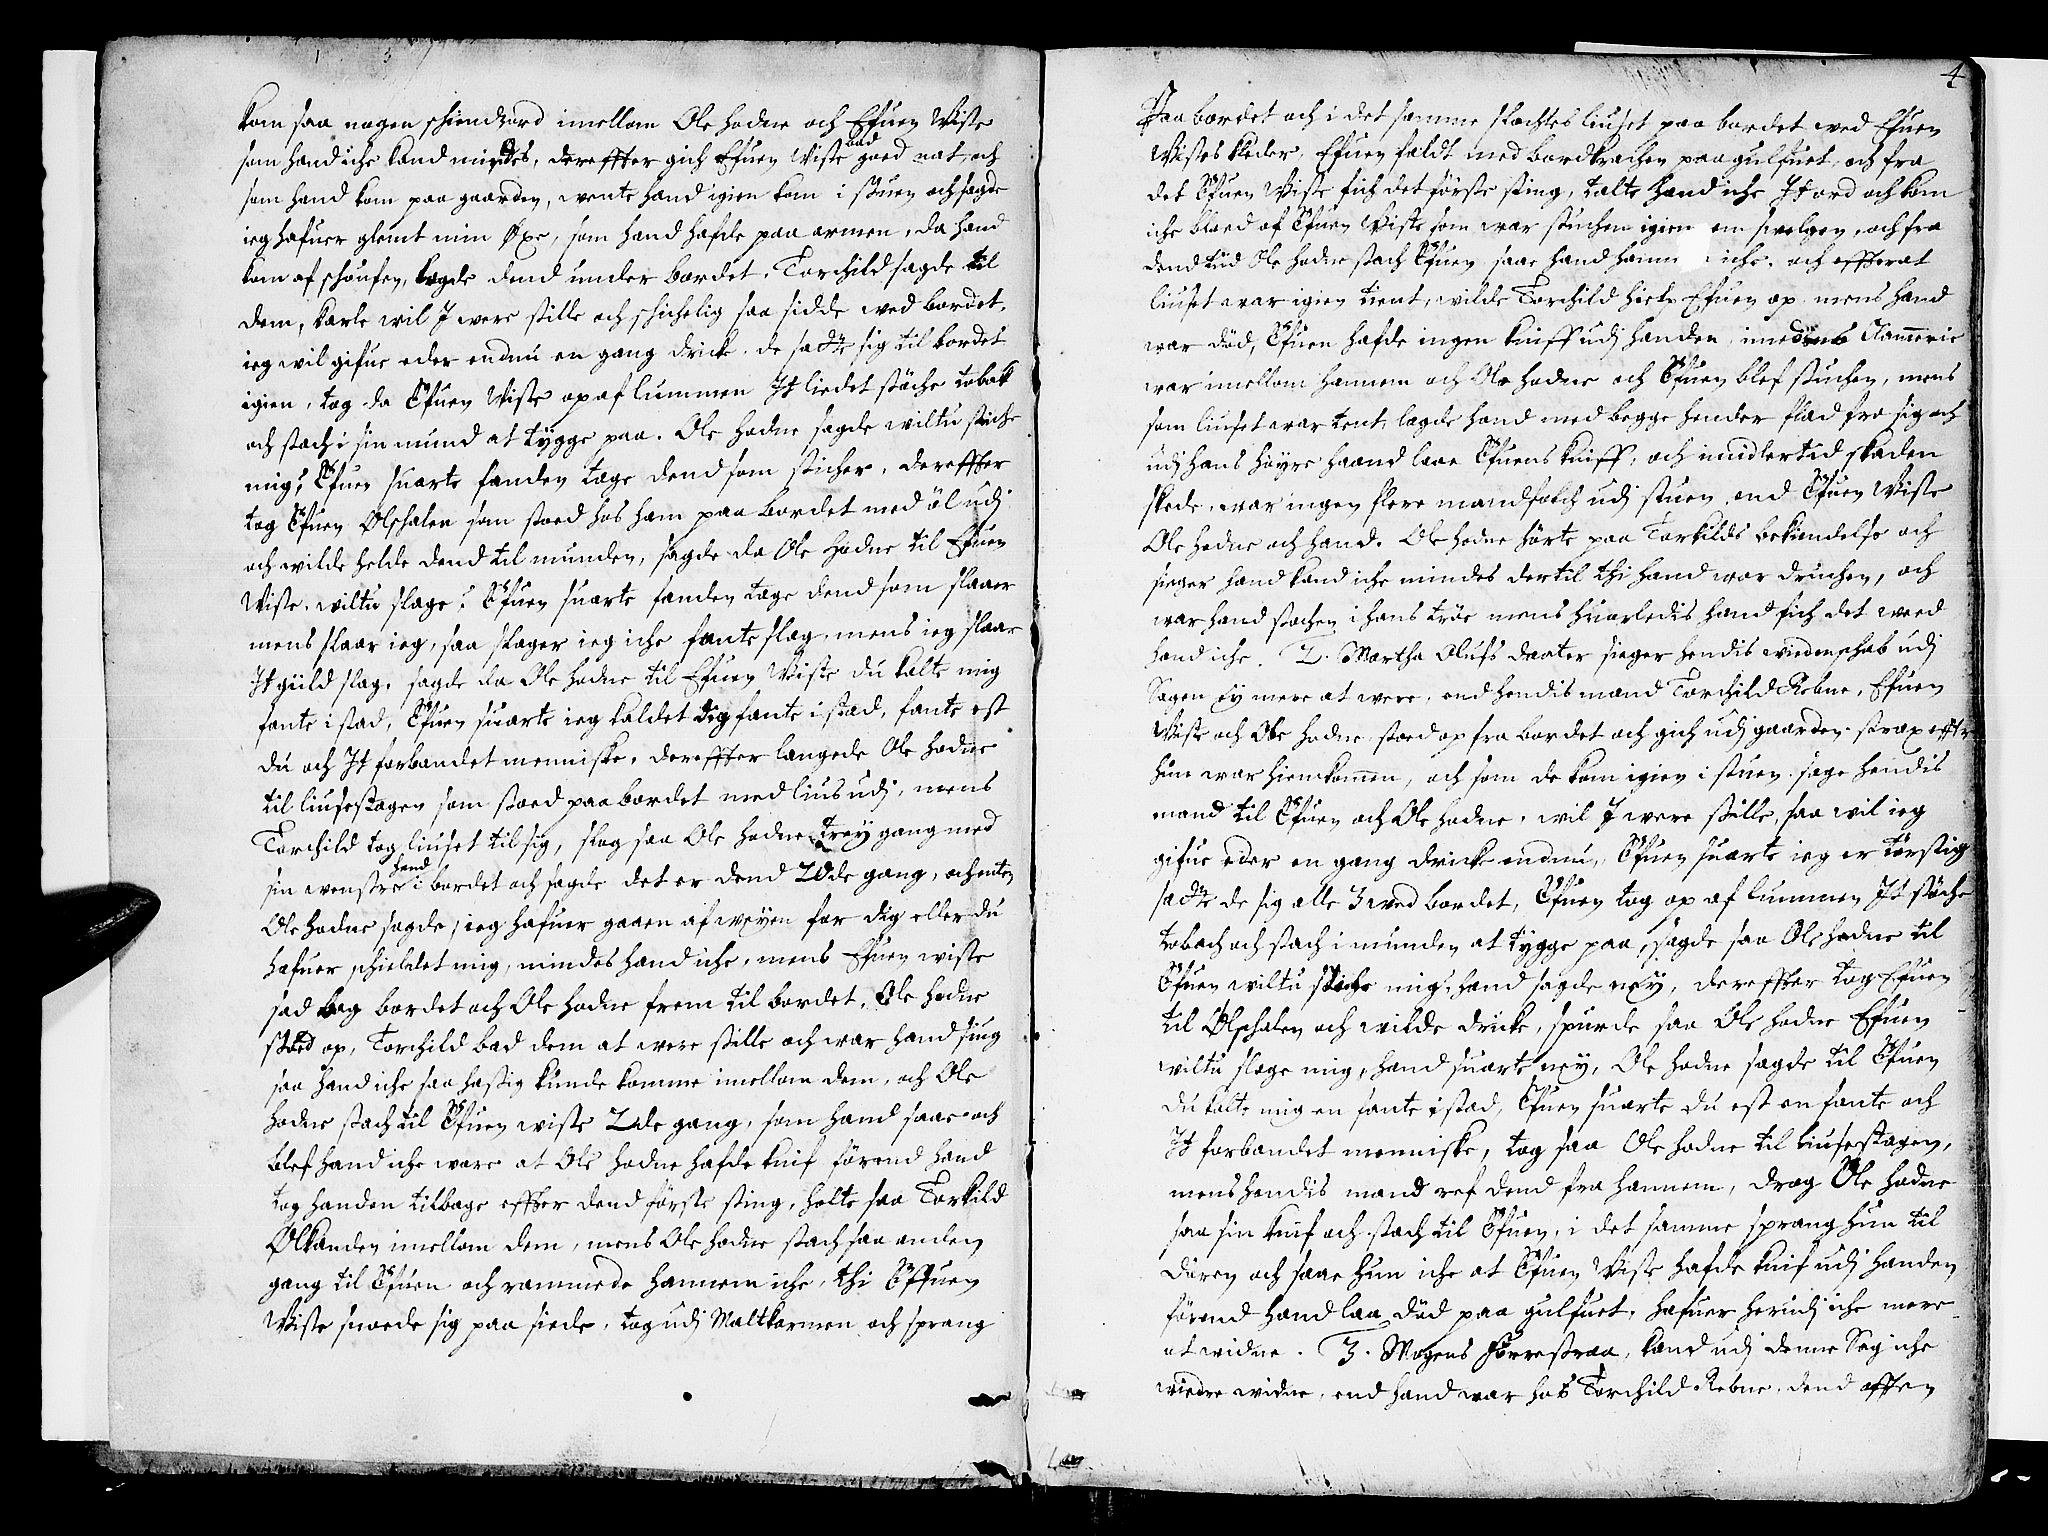 kom saa nogen skiendzord imellom Ole Hodne och Efuen Viste
som hand iche kand mindes, dereffter gich Efuen Viste bad goed nat, och
som hand kom paa gaarden, wente hand igien kom i stuen och sagde
ieg hafuer glemt min Øxe, som hand hafde paa armen, da hand
kom af schoufen, lagde dend under bordet. Torchild sagde til
dem, karle wil J were stille och schichelig saa sidde wed bordet,
ieg wil gifue eder endnu en gang dricke. de satte sig til bordet
igien, tog da Efuen Viste op af lummen It lidet støche tobak
och stach i sin mund at tygge paa. Ole Hodne sagde wiltu stiche
mig? Efuen suarte fanden tage dend som sticher, dereffter
tog Efuen Ølschalen som stoed hos ham paa bordet med øl udj
och wilde helde dend til munden, sagde da Ole Hodne til Efuen
Viste. wiltu slage? Efuen suarte fanden tage dend som slaaer
mens slaar ieg, saa slager ieg iche fante slag, mens ieg slaar
It guld slag. sagde da Ole Hodne til Efuen Viste du kalte mig
fante i stad, Efuen suarte ieg kaldet dig fante i stad, fante est
du och It forbandet menniske, dereffter langede Ole Hodne
til liusestagen som stoed paa bordet med lius udj, mens
Torchild tog liuset til sig, slog saa Ole Hodne trey gang med
sin wenstre hand i bordet och sagde det er dend 20de gang, och enten
Ole Hodne sagde, ieg hafuer gaaen af weyen for dig eller du
hafuer schieldet mig, mindes hand iche, mens Efuen wiste
sad bag bordet och Ole Hodne frem til bordet, Ole Hodne
stoed op, Torchild bad dem at were stille och war hand siug
saa hand iche saa hastig kunde komme imellom dem, och Ole
Hodne stach til Efuen wiste 2de gang, som hand saae och
blef hand iche ware at Ole Hodne hafde knif førend hand
tog handen tilbage effter dend første sting, holte saa Torkild
Ølkanden imellom dem, mens Ole Hodne stach saa anden
gang til Efuen och rammede hannem iche, thi Efuen
Viste snoede sig paa siede, tog udj Maltkormen och sprang
4
Paa bordet och i det samme slochtes liuset paa bordet wed Efuen
Wistes kleder. Efuen faldt med bordkrachen paa gulfuet, och fra
det Efuen Viste fich det første sting, talte hand iche It ord och kom
iche bloed af Efuen Viste som war stuchen igien em swelgen, och fra
dend tid Ole Hodne stach Efuen saae hand hannem iche. och effterat
liuset war igien tent, wilde Torchild hielpe Efuen op mens hand
war død, Efuen hafde ingen kniff udj handen, imedens Clammerie
war imellom hannem och Ole Hodne och Efuen blef stuchen, mens
som liuset war tent, lagde hand med begge hender flad fra sig och
udj hans høyre haand laae Efuens kniff, och imidlertid skaden
skede, war ingen flere mandfolch udj stuen, end Efuen Viste
Ole Hodne och hand. Ole Hodne hørte paa Torkilds bekiendelse och
sieger hand kand iche mindes dertil thi hand war druchen, och
war hand stochen i hans trøe mens huorledis hand fich det weed
hand iche. 2. Martha Olufs daater sieger hendis widenschab udj
Sagen ey mere at were, end hendis mand Torchild Rebne, Efuen
Viste och Ole Hodne stoed op fra bordet och gich udj gaarden strax effter
hun war hiemkommen, och som de kom igien i stuen sage hendis
mand til Efuen och Ole Hodne, wil J were stille, saa wil ieg
gifue eder en gang dricke endnu, Efuen suarte ieg er tørstig
satte de sig alle 3 wed bordet, Efuen tog op af lummen It støche
tobach och stach i munden at tygge paa, sagde saa Ole Hodne til
Efuen wiltu stiche mig, hand sagde ney, dereffter tog Efuen
til Ølschalen och wilde dricke, spurde saa Ole Hodne Efuen
wiltu slage mig, hand suarte ney, Ole Hodne sagde til Efuen
du kalte mig en fante i stad, Efuen suarte du est en fante och
It forbandet menniske, tog saa Ole Hodne til liusestagen,
mens hendis mand ref dend fra hannem, drog Ole Hodne
saa sin knif och stach til Efuen, i det samme sprang hun til
døren och saae hun iche at Efuen Viste hafde knif udj handen
førend hand laa død paa gulfuet, hafuer herudj iche mere
at widne. 3. Mogens Horrestraa, kand udj denne Sag iche
wiedre widne, end hand war hos Torchild Rebne, dend afften